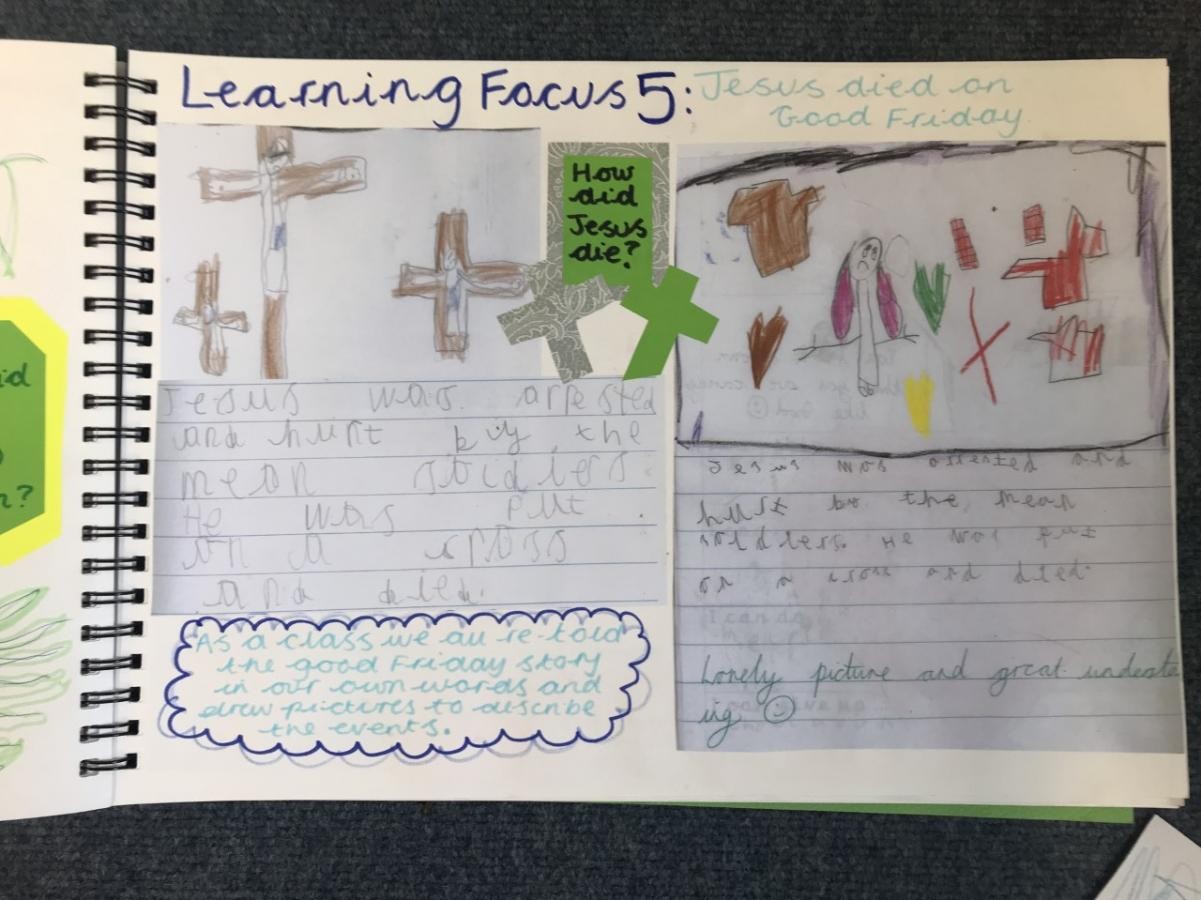 Learning Focus 5: Jesus died on
Good Friday
How
did
Jesus
die?
Jesus was arrested
and hurt by the
mean soldiers
He was put
on a cross
and died.
As a class we all re-told
the good Friday story
in our own words and
drew pictures to describe
the events.
Jesus was arrested and
hurt by the mean
soldiers. He was put
on a cross and died.
Lovely picture and great underst
ing